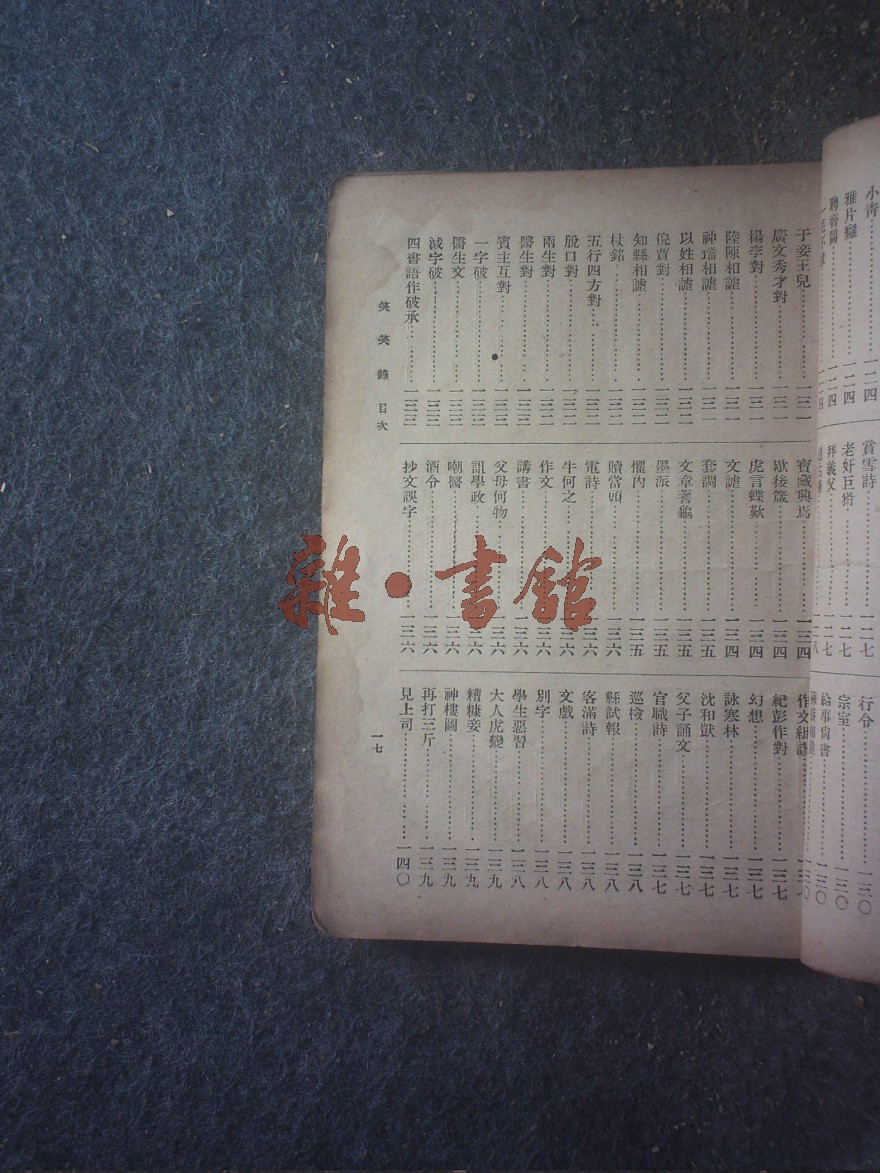 小青……一二四
雅片癮……一二四
聘齊圖……一二四
賞雪詩……一二七
老奸巨猾……一二七
拜義父……一二七
行令……一三〇
宗室……一三〇
給事狗書……一三〇
于妾王兒……一三一
廣文秀才對……一三一
楊李對……一三一
陸陳相謔……一三一
神瑤相謔……一三一
以姓相謔……一三二
倪賈對……一三二
知縣相謔……一三二
杖銘……一三二
五行四方對……一三二
股口對……一三二
兩生對……一三二
醫生對……一三三
賓主互對……一三三
一字破……一三三
醫生文……一三三
減字破……一三三
四書語作破承……一三三
寶藏興焉……一三四
歇後箴……一三四
虎言蝶歎……一三四
文謔……一三四
套調……一三五
文章蓍龜……一三五
墨派……一三五
懼內……一三五
贖當頭……一三六
電詩……一三六
牛何之……一三六
作文……一三六
講書……一三六
父母何物……一三六
訊學政……一三六
嘲醫……一三六
酒令……一三六
抄文誤字……一三六
紀彭作對……一三七
幻想……一三七
詠寒林……一三七
沈和獃……一三七
父子誦文……一三七
官職詩……一三七
巡檢……一三八
縣試報……一三八
客滿詩……一三八
文戲……一三八
別字……一三八
學生惡習……一三八
大人虎變……一三九
糟糠妾……一三九
神樓圖……一三九
再打三斤……一三九
見上司……一四〇
笑笑錄 目次
一七
雜·書館